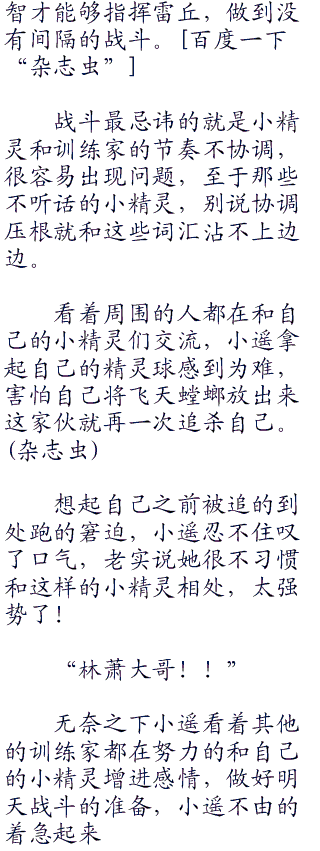 智才能够指挥雷丘，做到没
有间隔的战斗。[百度一下
“杂志虫”]
战斗最忌讳的就是小精
灵和训练家的节奏不协调，
很容易出现问题，至于那些
不听话的小精灵，别说协调
压根就和这些词汇沾不上边
边。
看着周围的人都在和自
己的小精灵们交流，小遥拿
起自己的精灵球感到为难，
害怕自己将飞天螳螂放出来
这家伙就再一次追杀自己。
(杂志虫)
想起自己之前被追的到
处跑的窘迫，小遥忍不住叹
了口气，老实说她很不习惯
和这样的小精灵相处，太强
势了！
“林萧大哥！！”
无奈之下小遥看着其他
的训练家都在努力的和自己
的小精灵增进感情，做好明
天战斗的准备，小遥不由的
着急起来